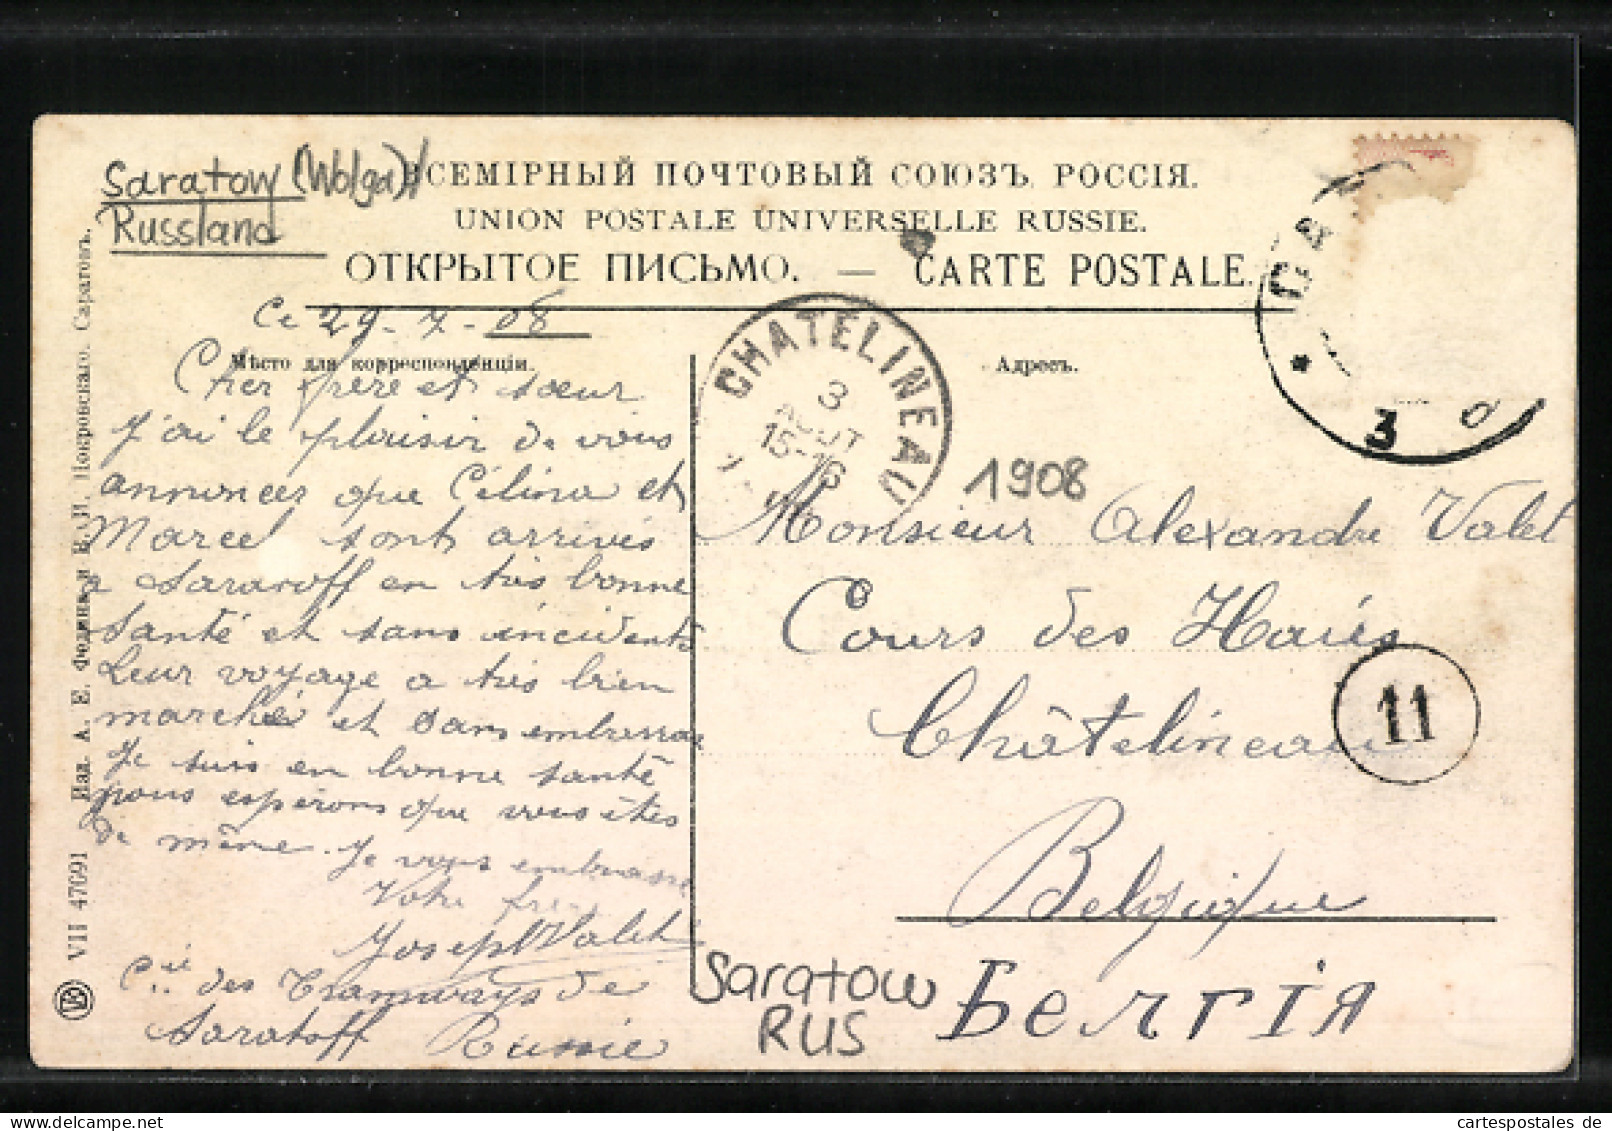 Saratow (Wolga)/
Russland
ВСЕМІРНЫЙ ПОЧТОВЫЙ СОЮЗЪ. РОССІЯ.
UNION POSTALE UNIVERSELLE RUSSIE.
ОТКРЫТОЕ ПИСЬМО. — CARTE POSTALE.
Мѣсто для корреспонденціи.
Адресъ.
Ce 29-7-08
Cher frère et sœur
J'ai le plaisir de vous
annoncer que Célina et
Marcel sont arrivés
a Saratoff en très bonne
santé et sans incidents
Leur voyage a très bien
marché et sans embarras
Je suis en bonne santé
nous espérons que vous êtes
de même. Je vous embrasse
Votre frère
Joseph Valet
Cie des Tramways de
Saratoff Russie
CHATELINEAU
3
AOUT
15-16
1908
3
Monsieur Alexandre Valet
Cours des Haies
Châtelineau
11
Belgique
Бельгія
Saratow
RUS
VII 47091 Изд. А. Е. Фодина и В. И. Покровскаго. Саратовъ.
cartespostales de